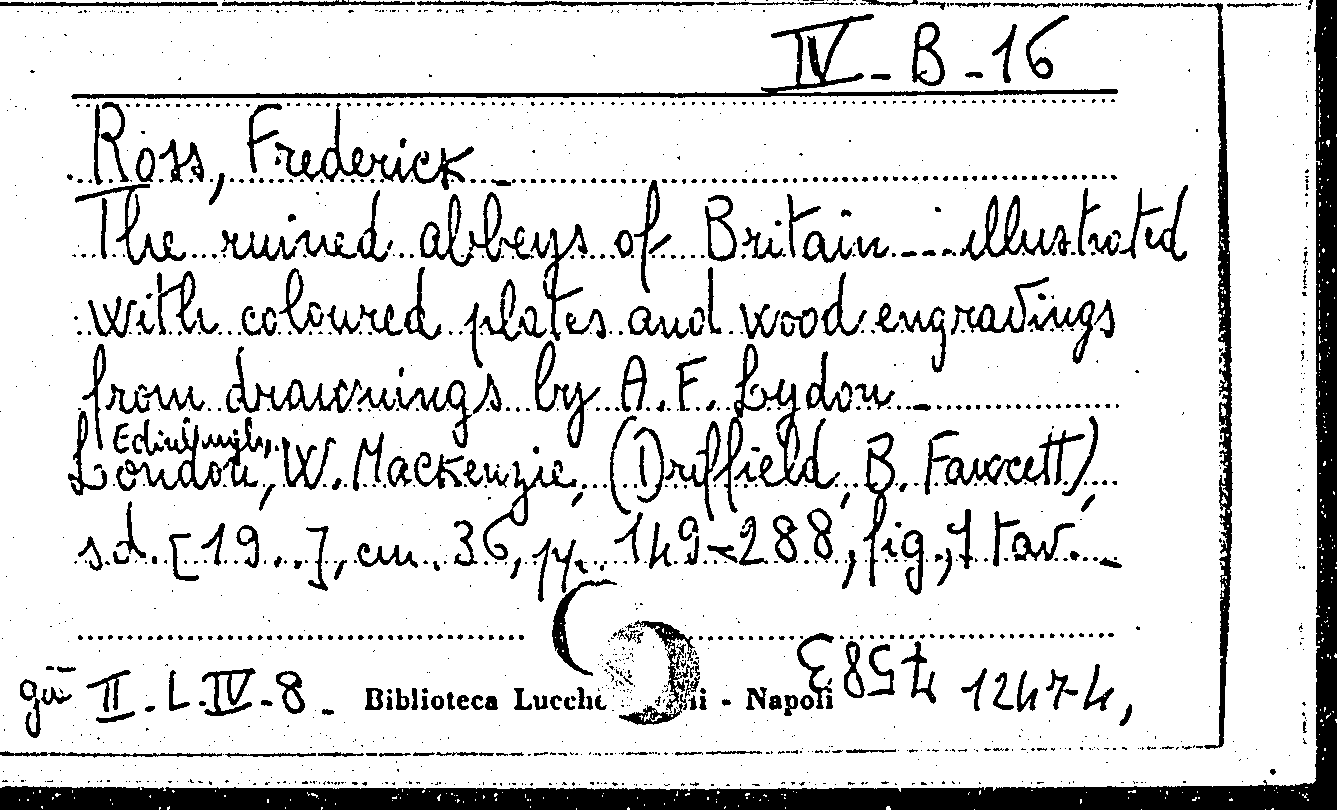 IV - B - 16
Ross, Frederick -
The ruined abbeys of Britain ... illustrated
with coloured plates and wood engravings
from drawnings by A. F. Lydon -
Edinburgh,
London, W. Mackenzie, (Driffield, B. Fawcett),
s.d. [19..], cm. 36, pp. 149-288, fig., 7 tav. -
già II. L. IV - 8 - Biblioteca Lucche ii - Napoli 12474,